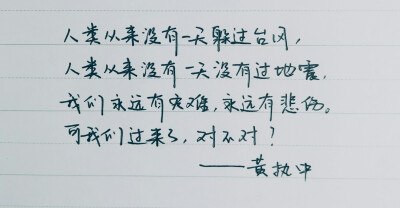 人类从来没有一天躲过台风，
人类从来没有一天没有过地震，
我们永远有灾难，永远有悲伤。
可我们过来了，对不对？
——黄执中